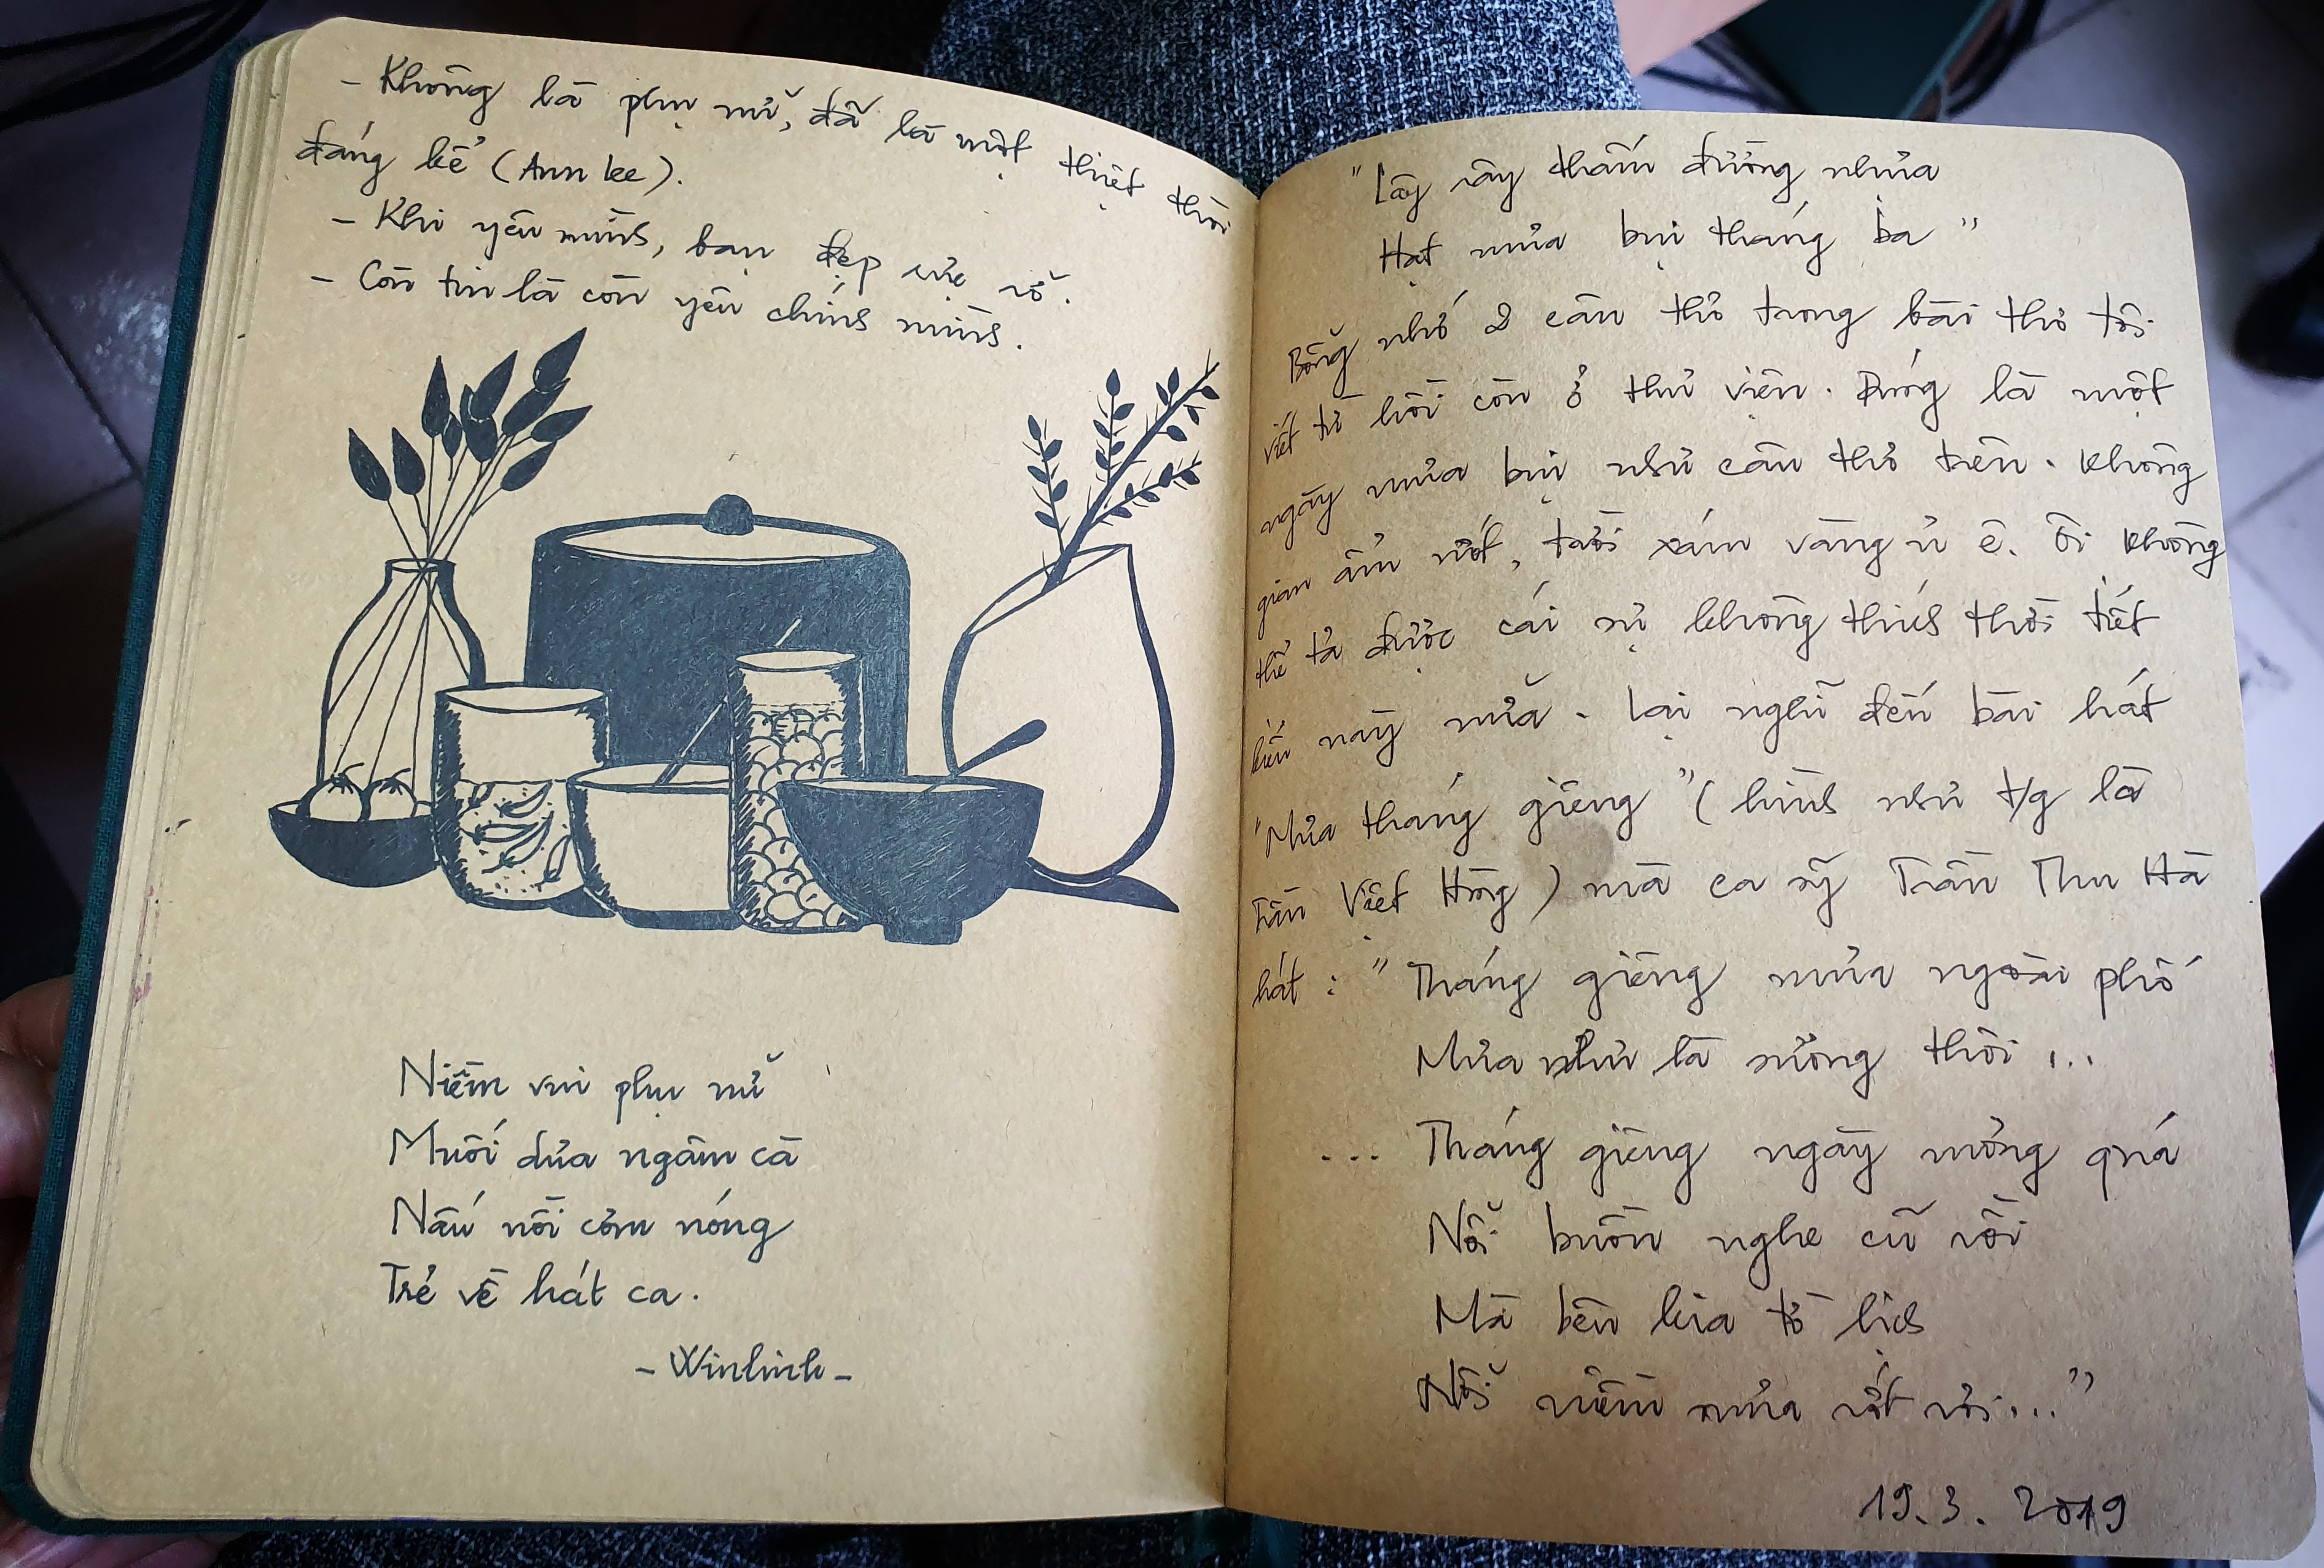 - Không là phụ nữ, đã là một thiệt thòi
đáng kể (Ann lee).
- Khi yêu mình, bạn đẹp rực rỡ.
- Còn tin là còn yêu chính mình.
Niềm vui phụ nữ
Muối dưa ngâm cà
Nấu nồi cơm nóng
Trẻ về hát ca.
- Winlinh -
"Lây rây thấm đường nhựa
Hạt mưa bụi tháng ba"
Bỗng nhớ 2 câu thơ trong bài thơ tôi
viết từ hồi còn ở thư viện. Đúng là một
ngày mưa bụi như câu thơ trên. Không
gian ẩm ướt, trời xám vàng ủ ê. Ôi không
thể tả được cái sự không thích thời tiết
kiểu này nữa. Lại nghĩ đến bài hát
"Mưa tháng giêng" (hình như t/g là
Trần Việt Hùng) mà ca sỹ Trần Thu Hà
hát: "Tháng giêng mưa ngoài phố
Mưa như là sương thôi...
... Tháng giêng ngày mỏng quá
Nỗi buồn nghe cũ rồi
Mà bên kia tờ lịch
Nỗi niềm mưa rớt rơi..."
19.3.2019